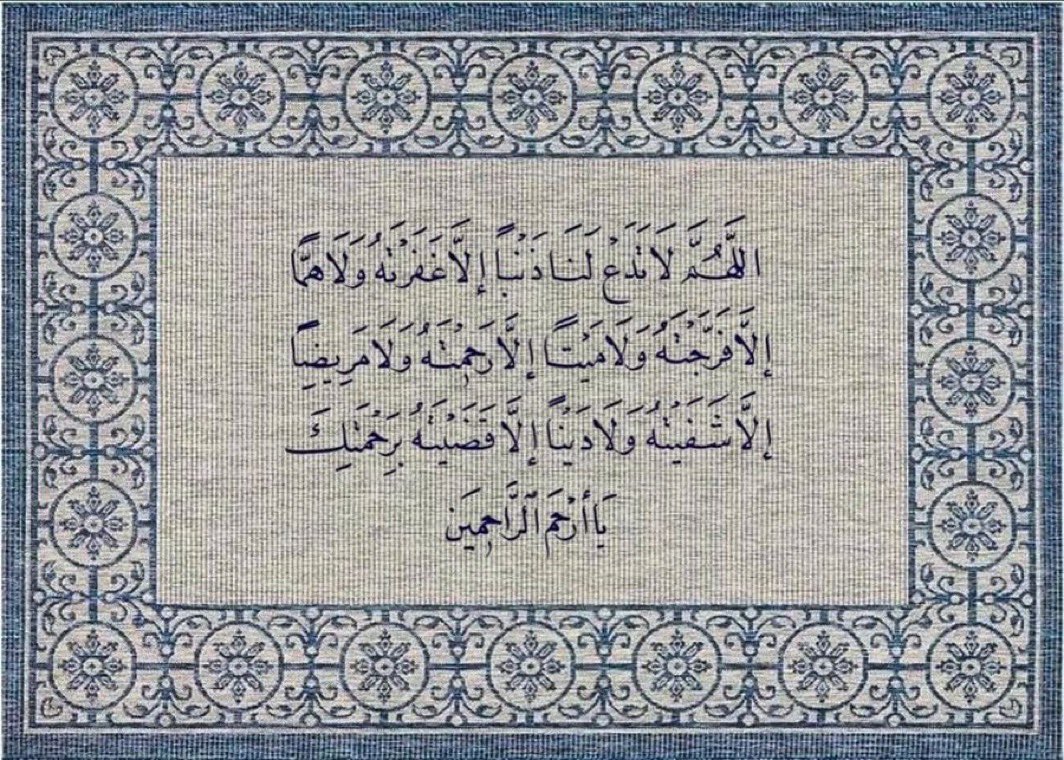 اللَّهُمَّ لَا تَدَعْ لَنَا ذَنْبًا إِلَّا غَفَرْتَهُ وَلَا هَمًّا
إِلَّا فَرَّجْتَهُ وَلَا مَيْتًا إِلَّا رَحِمْتَهُ وَلَا مَرِيضًا
إِلَّا شَفَيْتَهُ وَلَا دَيْنًا إِلَّا قَضَيْتَهُ بِرَحْمَتِكَ
يَا أَرْحَمَ الرَّاحِمِينَ